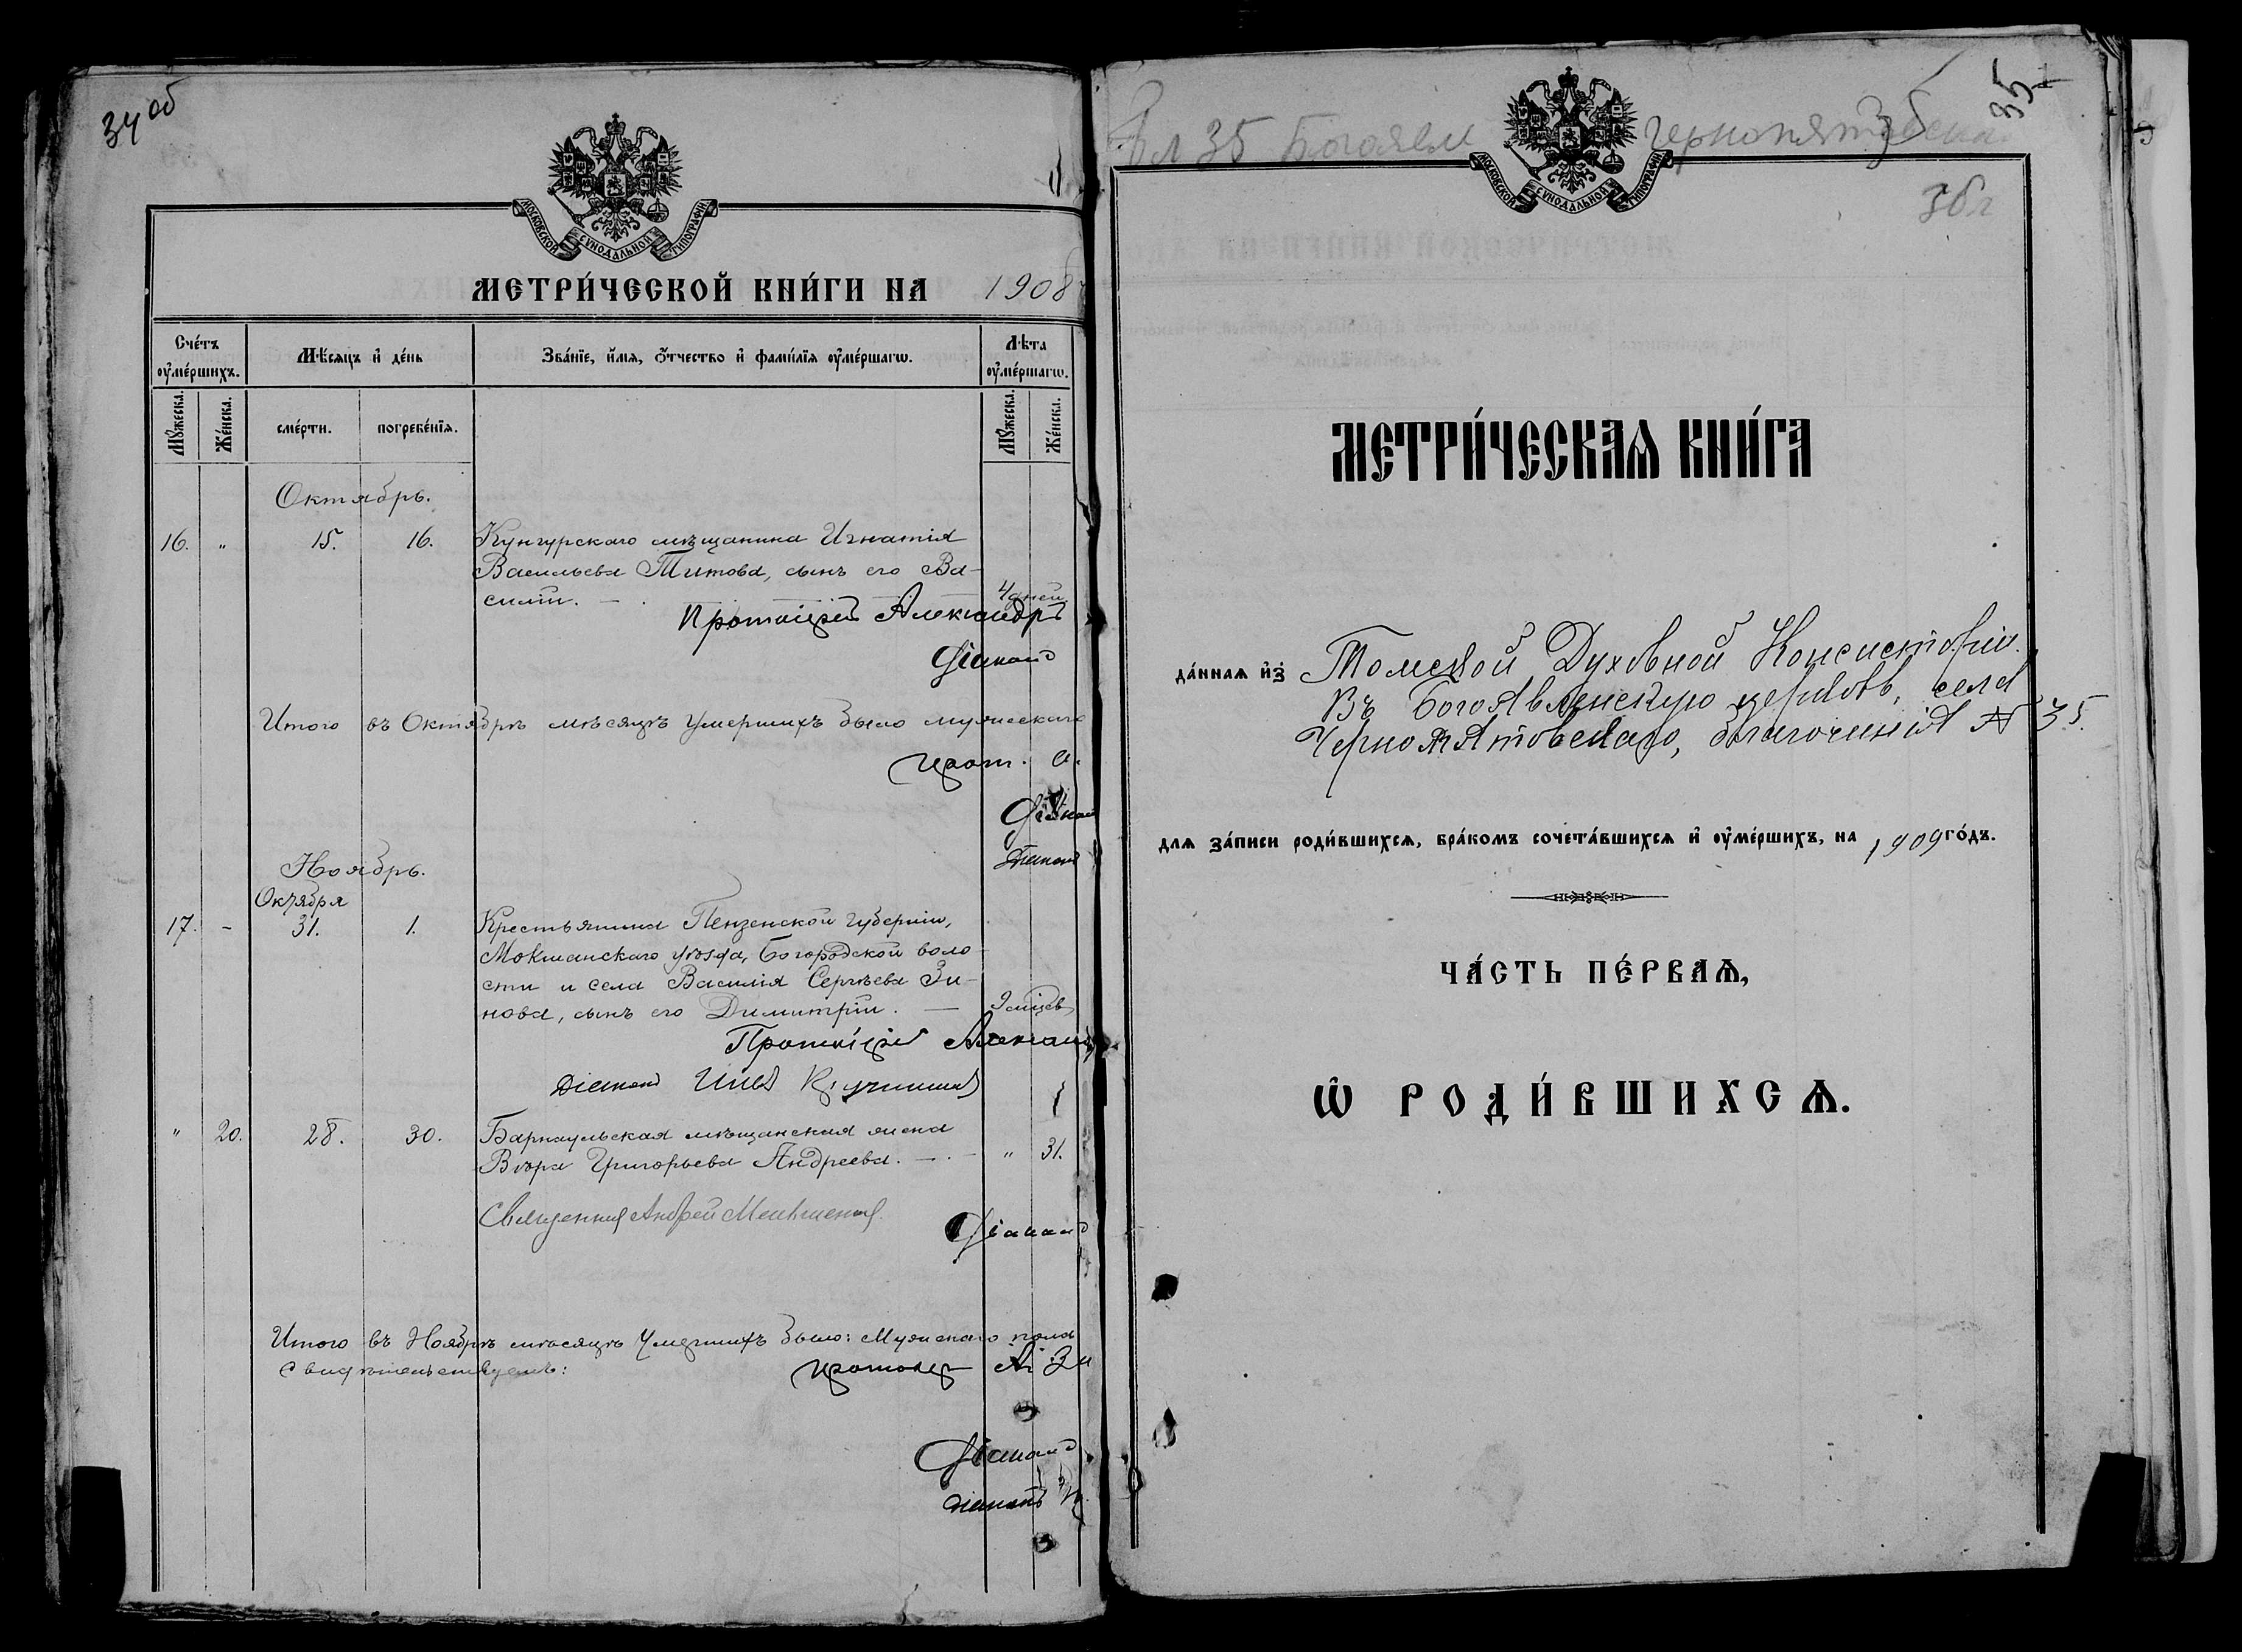 34 об
МОСКОВСКОЙ СУНОДАЛЬНОЙ ТИПОГРАФІИ
МЕТРИ́ЧЕСКОЙ КНИ́ГИ НА 1908
Сче́тъ оу҆ме́ршихъ.
Мѣ́сяцъ и҆ де́нь
Зва́нїе, и҆́мя, ѻ҆́тчество и҆ фами́лїя оу҆ме́ршагѡ.
Лѣ́та оу҆ме́ршагѡ.
Мꙋ́жеска.
Же́нска.
сме́рти.
погребе́нїя.
Мꙋ́жеска.
Же́нска.
Октябрь.
16. " 15. 16. Кунгурскаго мѣщанина Игнатія
Васильева Титова, сынъ его Ва-
силій. — 4 дней
Протоіерей Александръ
Діаконъ
Итого въ Октябрѣ мѣсяцѣ умершихъ было мужескаго
прот. А.
Діаконъ
Діаконъ
Ноябрь.
Октября
17. - 31. 1. Крестьянина Пензенской губерніи,
Мокшанскаго уѣзда, Богородской воло-
сти и села Василія Сергѣева Зи-
нова, сынъ его Димитрій. —
Протоіерей Александ
Діаконъ Илія
" 20. 28. 30. Барнаульская мѣщанская жена
Вѣра Григорьева Андреева. — " 31.
Священникъ Андрей
Діаконъ
Итого въ Ноябрѣ мѣсяцѣ умершихъ было: Мужскаго пола
Свидѣтельствуемъ: протоіер
Діаконъ
Діаконъ
35
л 35 Богоявл Чернопятовска
36
МОСКОВСКОЙ СУНОДАЛЬНОЙ ТИПОГРАФІИ
МЕТРИ́ЧЕСКАѦ КНИ́ГА
да́нная и҆з̾ Томской Духовной Консисторіи
Въ Богоявленскую церковь, села
Чернопятовскаго, благочинія № 35.
для за́писи роди́вшихся, бра́комъ сочета́вшихся и҆ оу҆ме́ршихъ, на 1909 го́дъ.
ЧА́СТЬ ПЕ́РВАѦ,
Ѡ҆ РОДИ́ВШИХСѦ.